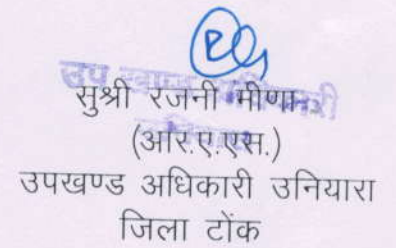 उप खण्ड अधिकारी
सुश्री रजनी मीणा
(आर.ए.एस.)
उपखण्ड अधिकारी उनियारा
जिला टोंक